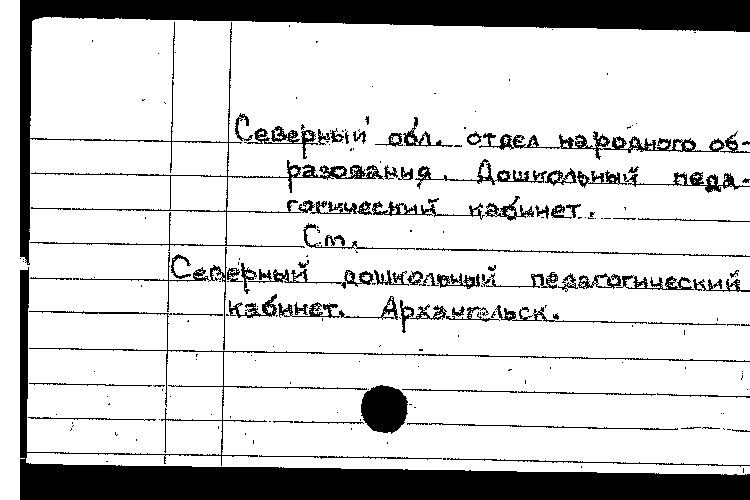 Северный обл. отдел народного об-
разования. Дошкольный педа-
гогический кабинет.
См.
Северный дошкольный педагогический
кабинет. Архангельск.